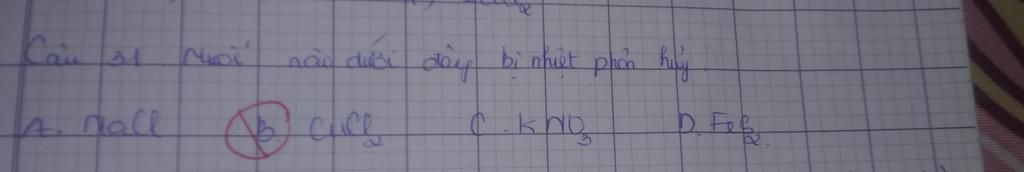 Câu 31 Muối nào dưới đây bị nhiệt phân hủy
A. NaCl B. CuCl₂ C. KNO₃ D.